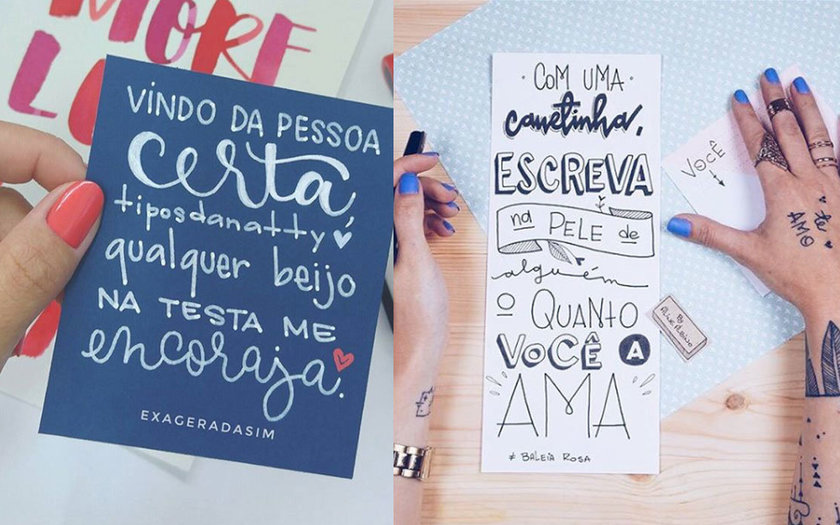 MORE
LO
VINDO DA PESSOA
certa,
tiposdanatty
qualquer beijo
NA TESTA ME
encoraja.
EXAGERADASIM
COM UMA
canetinha,
ESCREVA
na PELE de
alguém
O QUANTO
VOCÊ A
AMA
# BALEIA ROSA
VOCÊ
te
AMO
By